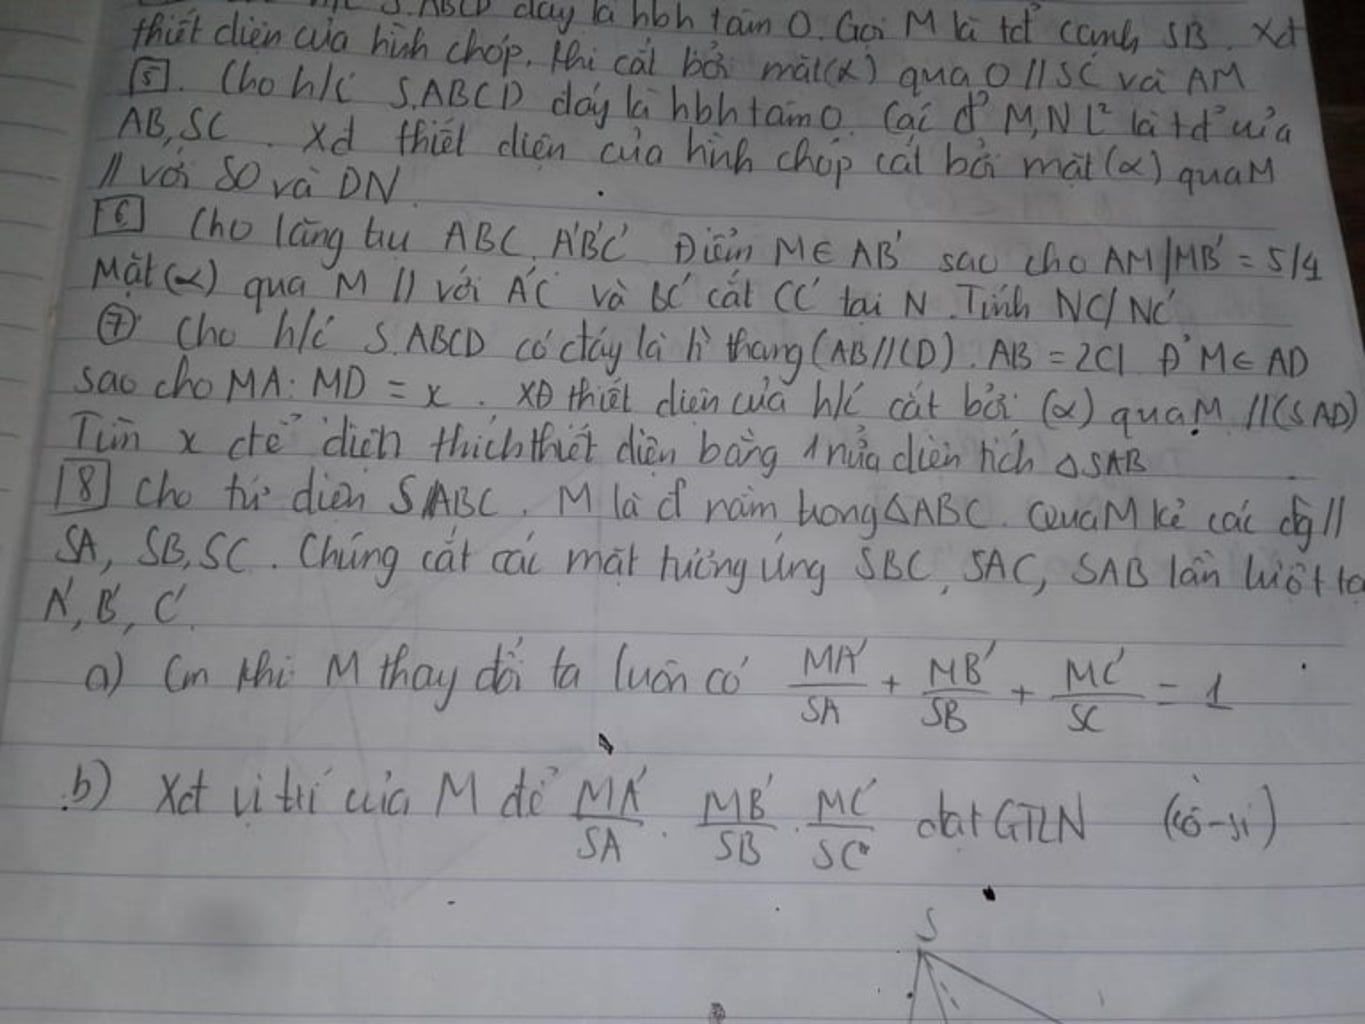 S.ABCD đáy là hbh tâm O. Gọi M là tđ cạnh SB. Xđ
thiết diện của hình chóp. khi cắt bởi mặt(α) qua O // SC và AM
5. Cho h/c S.ABCD đáy là hbh tâm O. Các đ' M,N L² là tđ' của
AB, SC. Xđ thiết diện của hình chóp cắt bởi mặt (α) qua M
// với SO và DN.
6 Cho lăng trụ ABC. A'B'C' Điểm M∈ AB' sao cho AM/MB' = 5/4
Mặt (α) qua M // với A'C và BC' cắt CC' tại N. Tính NC/NC'
7 Cho h/c S.ABCD có đáy là h' thang (AB//CD). AB = 2CD Đ' M∈ AD
sao cho MA: MD = x. XĐ thiết diện của h/c cắt bởi (α) qua M //(SAD)
Tìm x để diện thích thiết diện bằng 1 nửa diện tích ΔSAB
8 Cho tứ diện SABC. M là đ nằm trong ΔABC. Qua M kẻ các đg //
SA, SB, SC. Chúng cắt các mặt tương ứng SBC, SAC, SAB lần lượt tạ
A', B', C'.
a) Cm khi M thay đổi ta luôn có MA'/SA + MB'/SB + MC'/SC = 1
b) Xđ vị trí của M để MA'/SA . MB'/SB . MC'/SC đạt GTLN (cô-si)
S